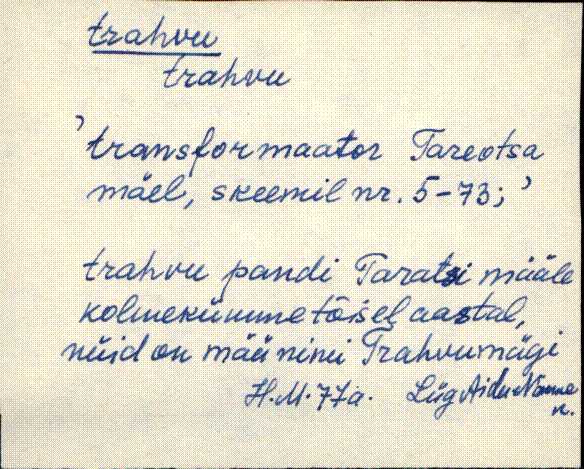 trahvu
trahvu
'transformaator Tareotsa
mäel, skeemil nr. 5-73;'
trahvu pandi Taratsi määle
kolmekümne tõisel aastal,
nüid on mää nimi Trahvumägi
H.M. 77a. Liig Aidu-Nomme
k.